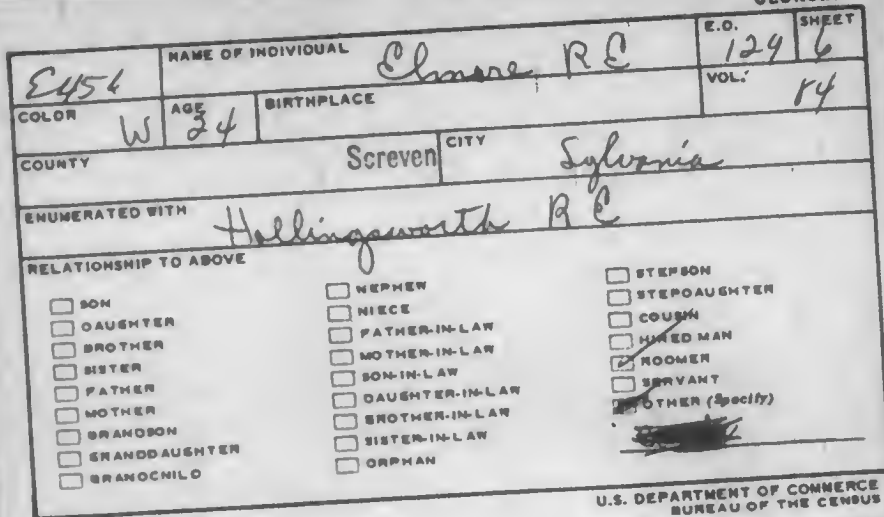 E456
NAME OF INDIVIDUAL
Elmore, R E
E.D.
129
SHEET
6
COLOR
W
AGE
34
BIRTHPLACE
VOL.
84
COUNTY
Screven
CITY
Sylvania
ENUMERATED WITH
Hollingsworth R E
RELATIONSHIP TO ABOVE
SON
DAUGHTER
BROTHER
SISTER
FATHER
MOTHER
GRANDSON
GRANDDAUGHTER
GRANDCHILD
NEPHEW
NIECE
FATHER-IN-LAW
MOTHER-IN-LAW
SON-IN-LAW
DAUGHTER-IN-LAW
BROTHER-IN-LAW
SISTER-IN-LAW
ORPHAN
STEPSON
STEPDAUGHTER
COUSIN
HIRED MAN
ROOMER
SERVANT
OTHER (Specify)
U.S. DEPARTMENT OF COMMERCE
BUREAU OF THE CENSUS